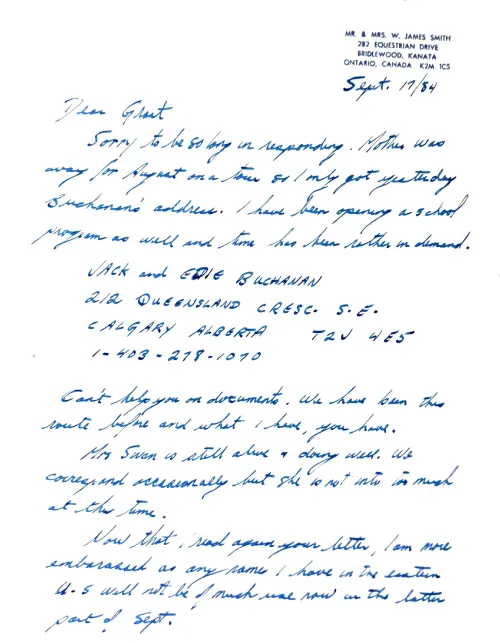 MR. & MRS. W. JAMES SMITH
282 EQUESTRIAN DRIVE
BRIDLEWOOD, KANATA
ONTARIO, CANADA K2M 1C5
Sept. 17/84
Dear Grant
Sorry to be so long in responding. Mother was
away for August on a tour so I only got yesterday
Buchanan's address. I have been opening a school
program as well and time has been rather in demand.
JACK and EDIE BUCHANAN
212 QUEENSLAND CRESC. S.E.
CALGARY ALBERTA T2J 4E5
1-403-278-1070
Can't help you on documents. We have been this
route before and what I have, you have.
Mrs Swan is still alive & doing well. We
correspond occasionally but she is not into it much
at this time.
Now that I read again your letter, I am more
embarassed as any names I have in the eastern
U.S will not be of much use now in the latter
part of Sept.